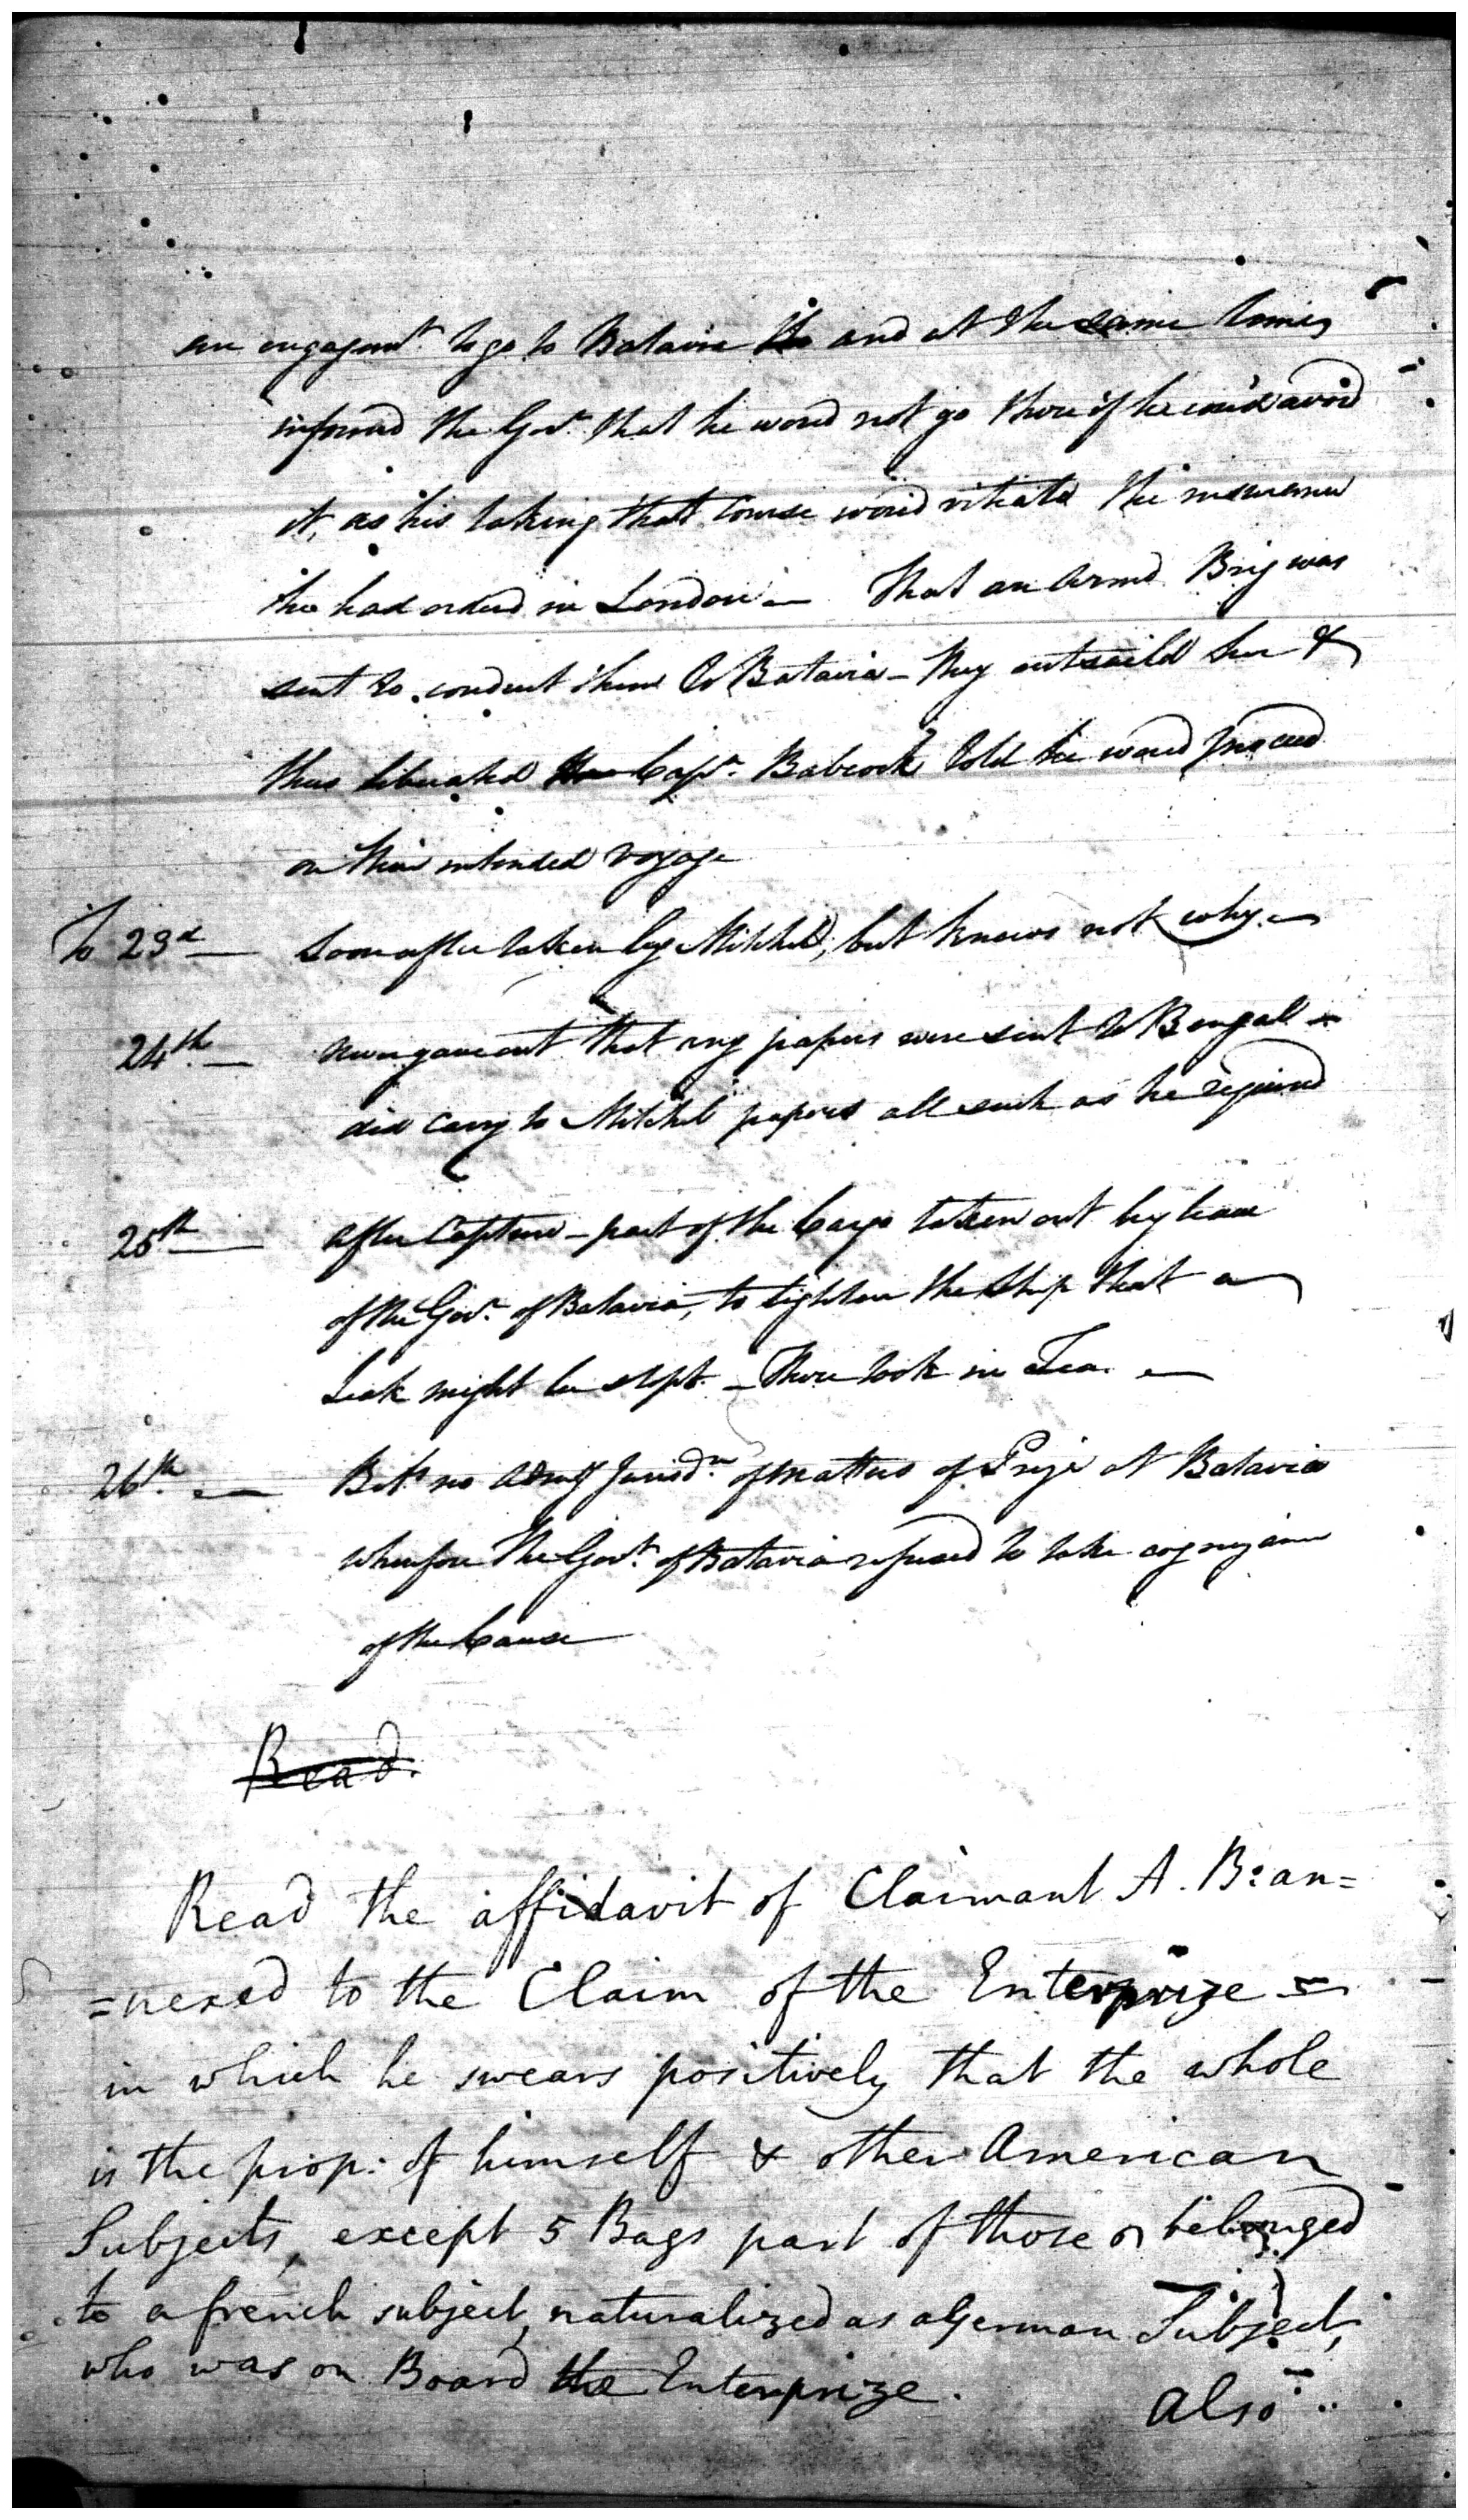 an engagemt. to go to Batavia and at the same time
informd the Govr. that he would not go there if he could avoid
it, as his taking that course would vitiate the insurance
he had orderd in London — That an armd Brig was
sent to conduct them to Batavia — they outsaild her &
thus liberated Capt. Babcock told he would proceed
on their intended voyage
To 23d — Soon after taken by Mitchel, but knows not why —
24th — never gave out that any papers were sent to Bengal —
did carry to Mitchel papers all such as he required
25th — after Capture — part of the Cargo taken out by leave
of the Govr. of Batavia, to lighten the ship that a
Leak might be stopt. — There took in Tea. —
26th — no Jurisdn. of matters of Prize at Batavia
wherefore the Govt. of Batavia refused to take cognizance
of the Cause
Read.
Read the affidavit of Claimant A. B: an=
=nexed to the Claim of the Enterprize —
in which he swears positively that the whole
is the prop: of himself & other American
Subjects, except 5 Bags part of those belonged
to a french subject, naturalized as a German Subject,
who was on Board the Enterprize.
also